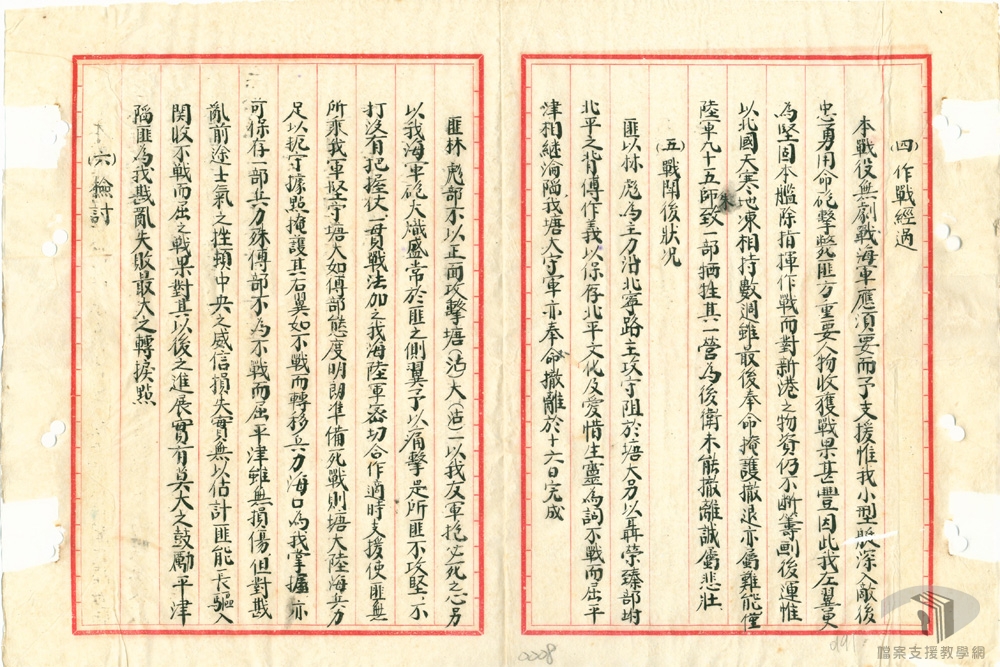 (四)作戰經過
本戰役無劇戰海軍應須要而予支援惟我小型艇深入敵後
忠勇用命砲擊斃匪方重要人物收獲戰果甚豐因此我左翼更
為堅固本艦除指揮作戰而對新港之物資仍不斷籌劃後運惟
以北國天寒地凍相持數週雖最後奉命掩護撤退亦屬難能僅
陸軍九十五師致一部犧牲其一營為後衛未能撤離誠屬悲壯
(五)戰鬥後狀况
匪以林彪為主力沿北寧路主攻守阻於塘大另以聶榮臻部坿
北平之背傅作義以保存北平文化及愛惜生靈為詞不戰而屈平
津相繼淪陷我塘大守軍亦奉命撤離於十六日完成
匪林彪部不以正面攻擊塘(沽)大(沽)一以我友軍抱必死之心另
以我海軍砲火熾盛常於匪之側翼予以痛擊是所匪不攻堅不
打沒有把握仗一貫戰法加之我海陸軍密切合作適時支援使匪無
所乘我軍堅守塘大如傅部態度明朗准備死戰則塘大陸海兵力
足以扼守據點掩護其右翼如不戰而轉移兵力海口為我掌握亦
可保存一部兵力殊傅部不為不戰而屈平津雖無損傷但對戡
亂前途士氣之挫頓中央之威信損失實無以估計匪能長驅入
関收不戰而屈之戰果對其以後之進展實有莫大之鼓勵平津
陷匪為我戡亂失敗最大之轉捩點
(六)檢討
0008
檔案支援教學網